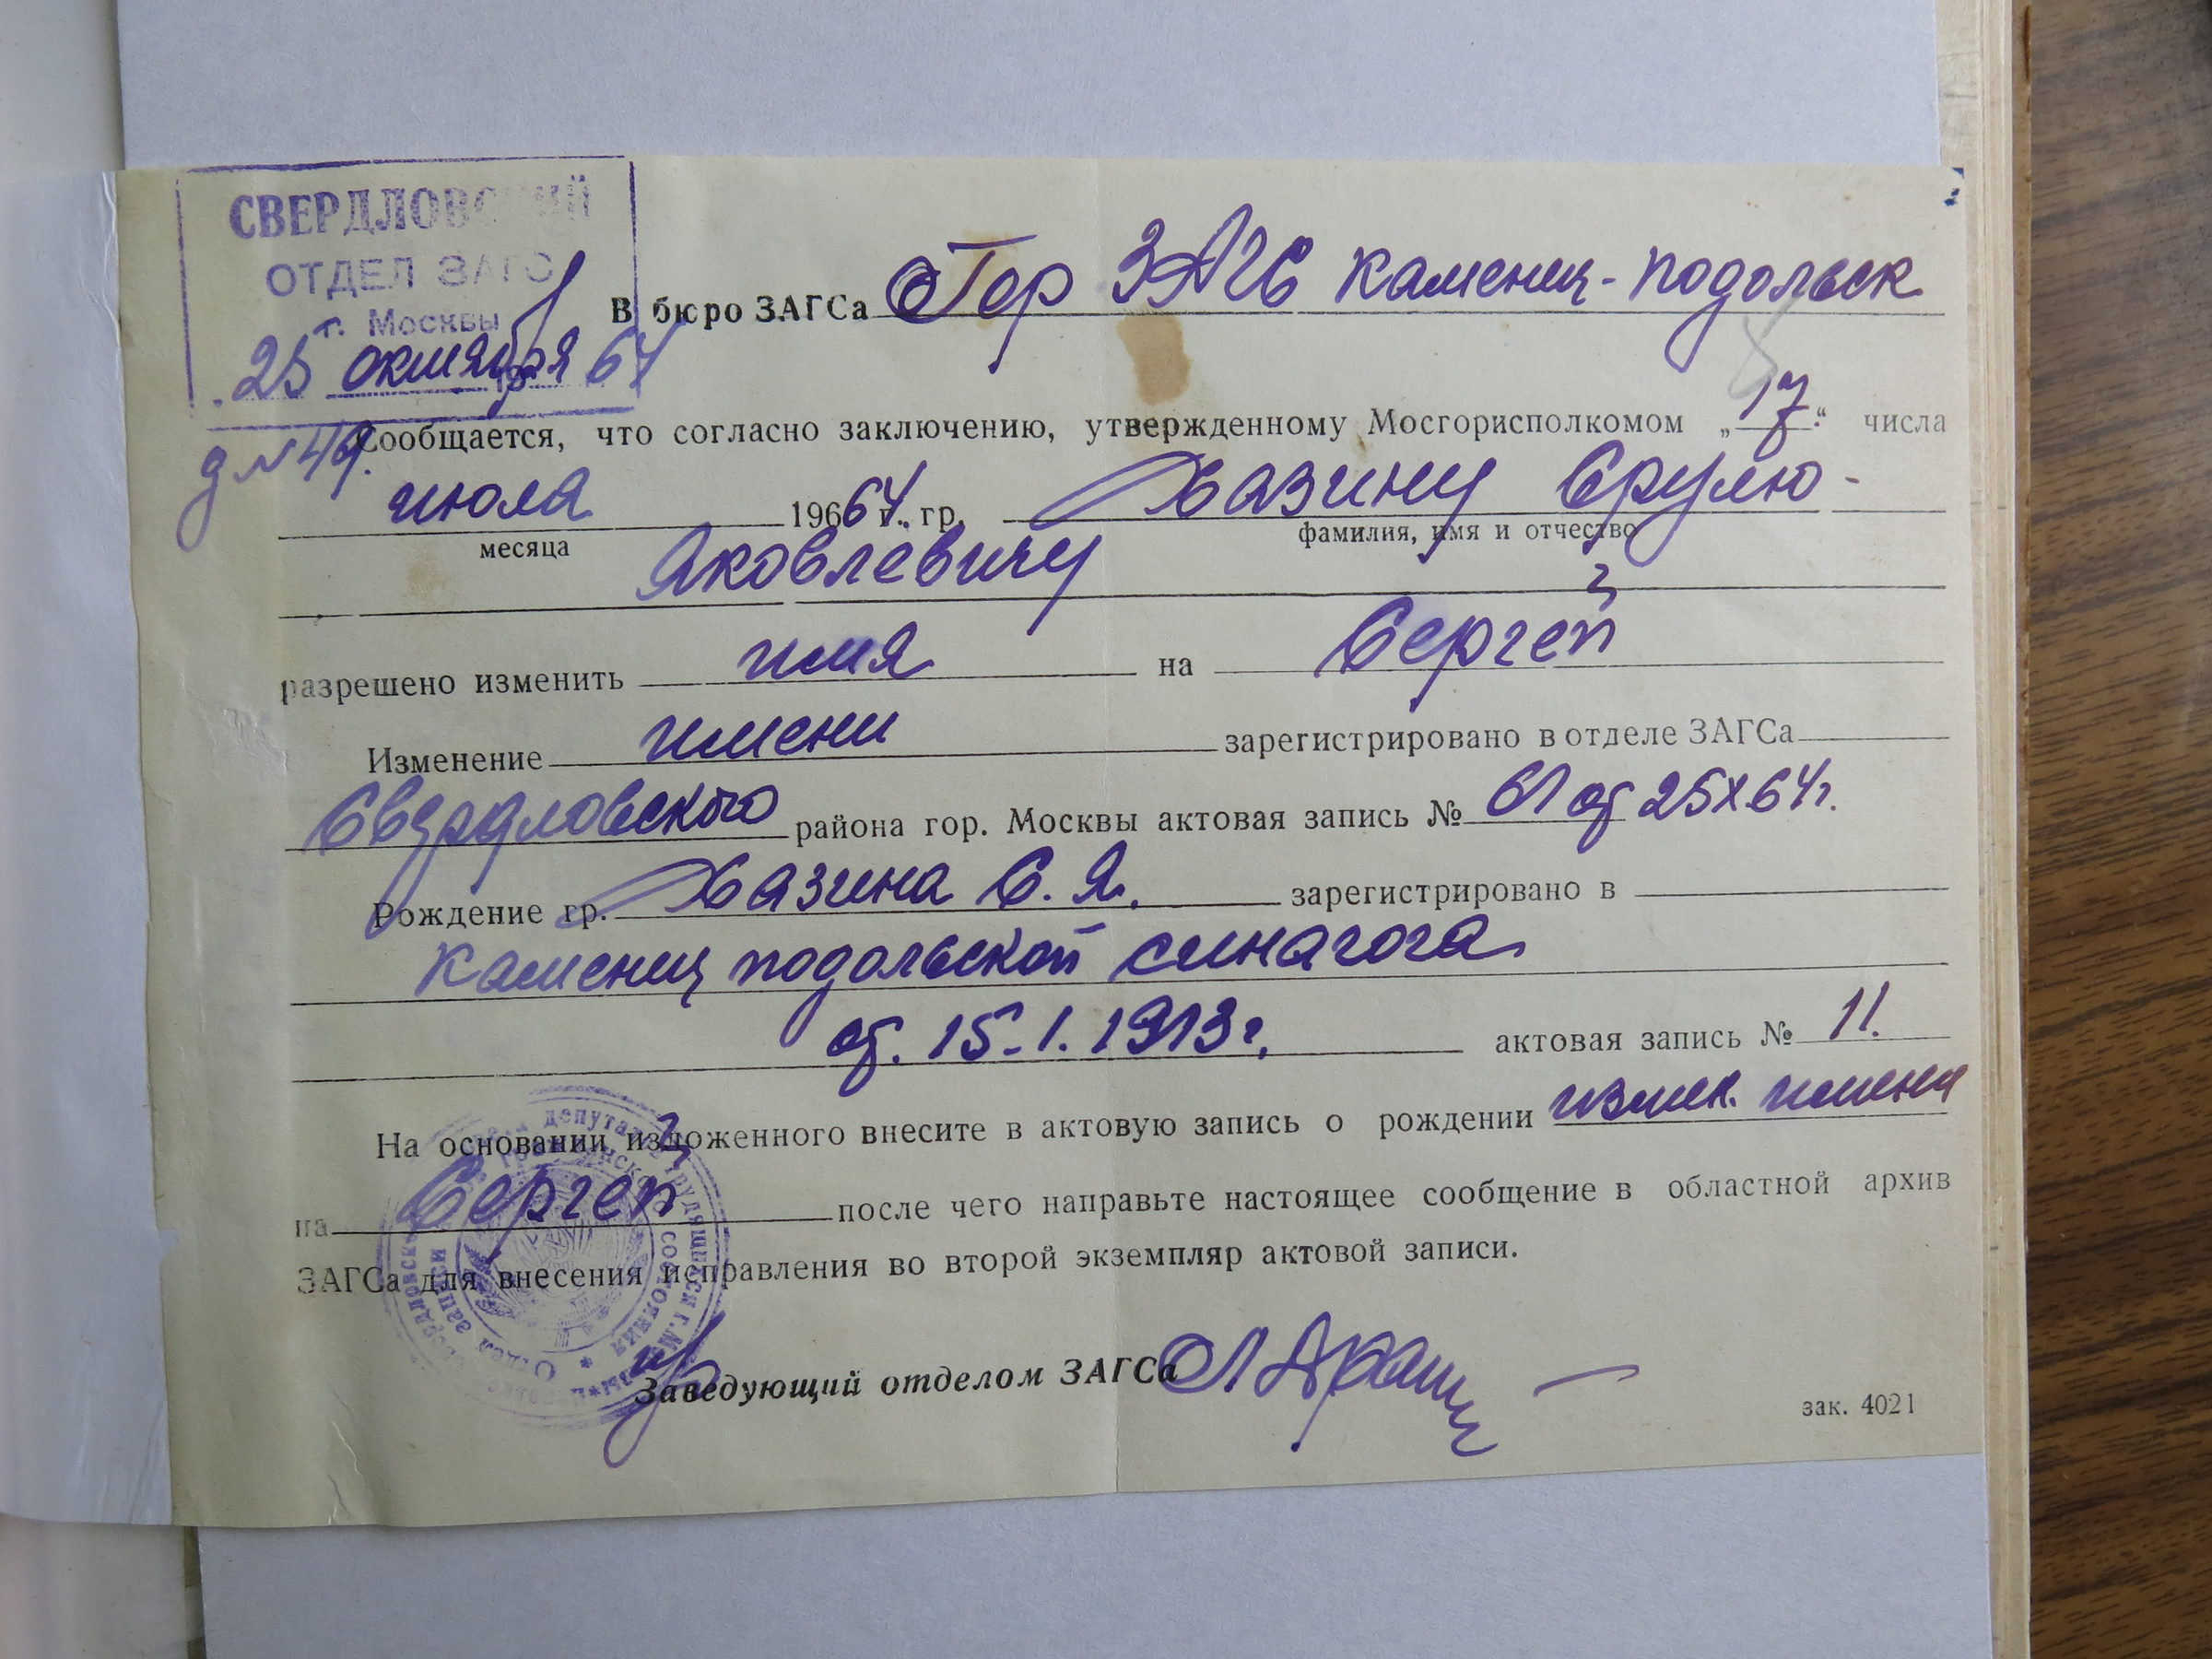 СВЕРДЛОВСКИЙ
ОТДЕЛ ЗАГС
г. Москвы
25 октября 1964
д N 49.
В бюро ЗАГСа Гор ЗАГС Каменец-Подольск
Сообщается, что согласно заключению, утвержденному Мосгорисполкомом „17“ числа
июля 19664 г., гр. Хазину Срулю-
месяца фамилия, имя и отчество
Яковлевичу
разрешено изменить имя на Сергей
Изменение имени зарегистрировано в отделе ЗАГСа
Свердловского района гор. Москвы актовая запись № 61 от 25 X 64 г.
Рождение гр. Хазина С. Я. зарегистрировано в
Каменец подольской синагога
от 15.1.1913 г. актовая запись № 11.
На основании изложенного внесите в актовую запись о рождении измен. имени
на Сергей после чего направьте настоящее сообщение в областной архив
ЗАГСа для внесения исправления во второй экземпляр актовой записи.
Заведующий отделом ЗАГСа
зак. 4021